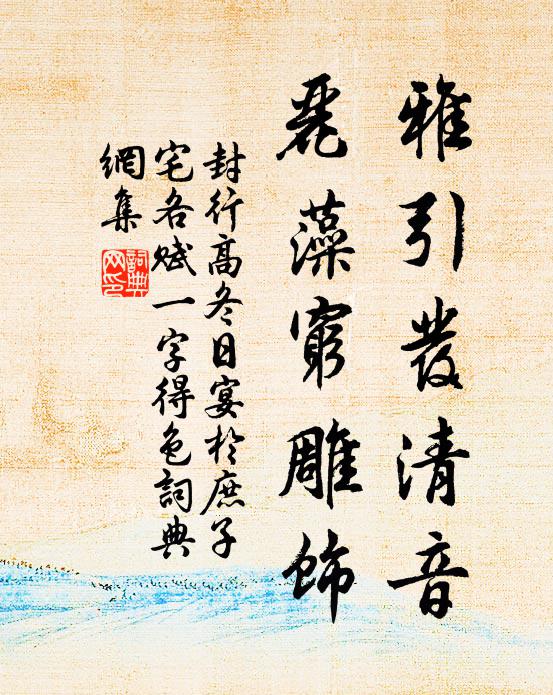 雅引發清音
麗藻窮雕飾
封行高冬日宴於庶子
宅各賦一字得色詞典
網集
詞典
网印